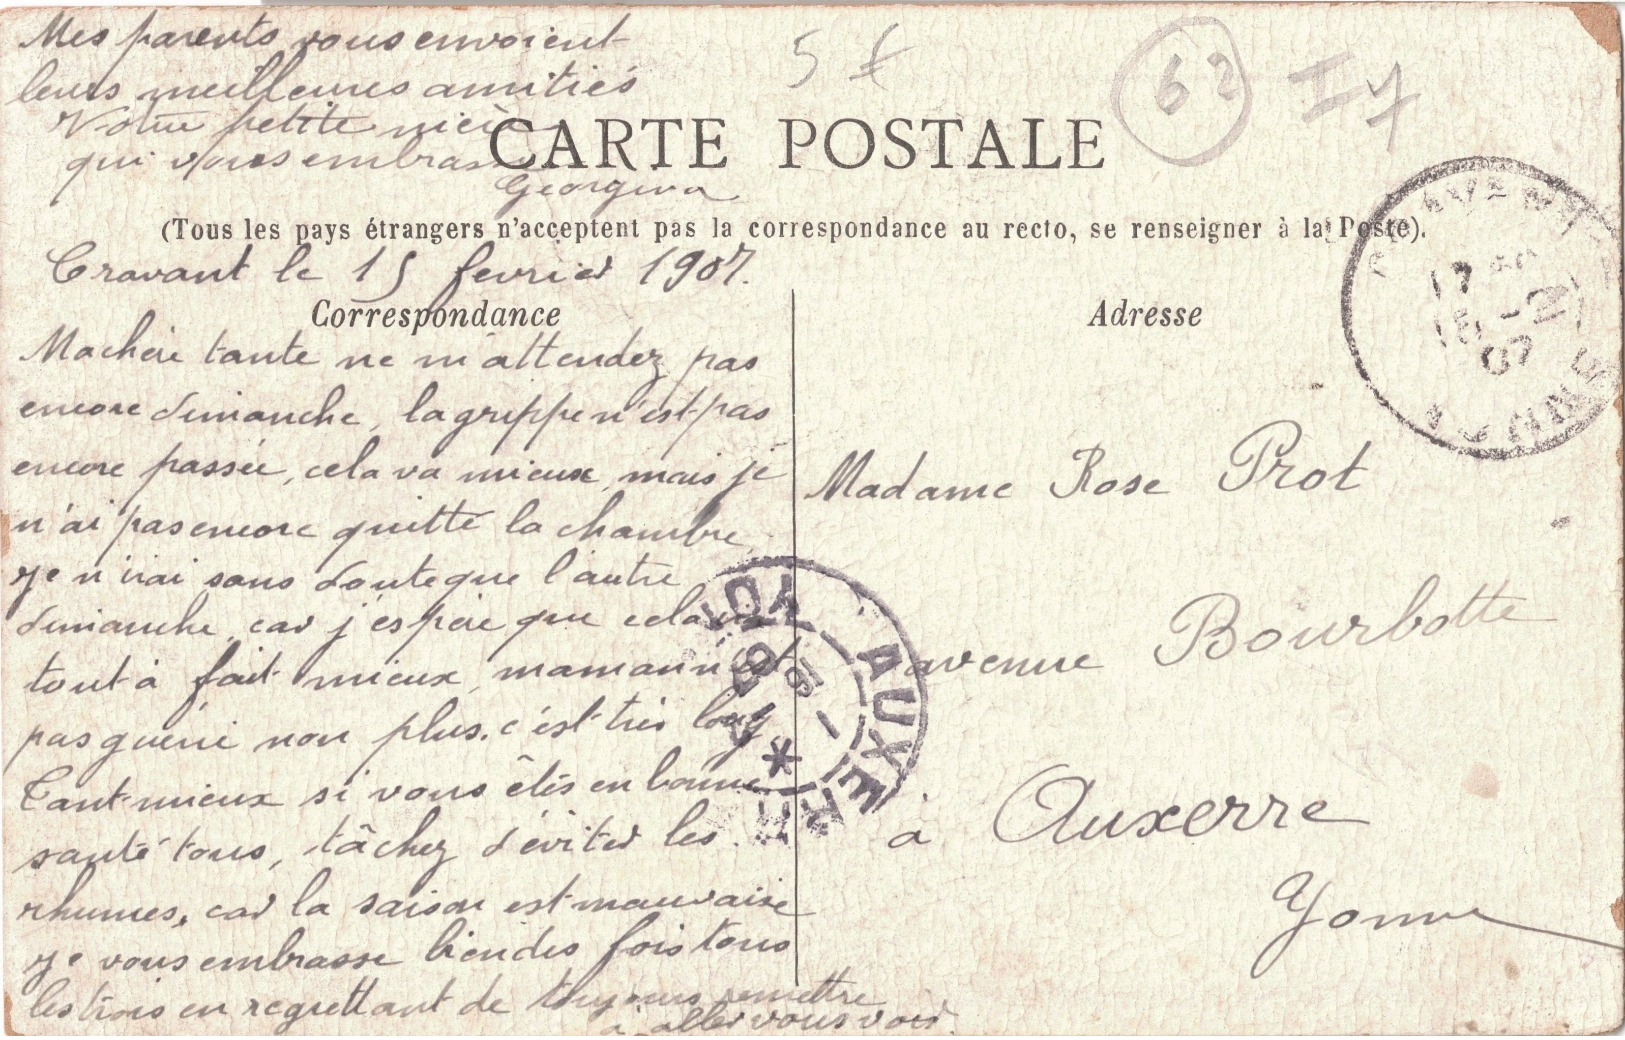 Mes parents vous envoient
leurs meilleures amitiés
Votre petite nièce
qui vous embrasse
Georgina
5 f
62
I 7
CARTE POSTALE
(Tous les pays étrangers n'acceptent pas la correspondance au recto, se renseigner à la Poste).
Cravant le 15 fevrier 1907.
Correspondance
Ma chère tante ne m'attendez pas
encore dimanche, la grippe n'est pas
encore passée, cela va mieux, mais je
n'ai pas encore quitté la chambre,
je n'irai sans doute que l'autre
dimanche, car j'espère que cela ira
tout à fait mieux, maman n'est
pas guérie non plus, c'est très long
Tant mieux si vous êtes en bonne
santé tous, tâchez d'éviter les
rhumes, car la saison est mauvaise
je vous embrasse bien des fois tous
les trois en regrettant de toujours remettre
à aller vous voir.
Adresse
Madame Rose Prot
avenue Bourbotte
à Auxerre
Yonne
17
15 -2
07
YONNE
AUXERRE
YON
15 -
*